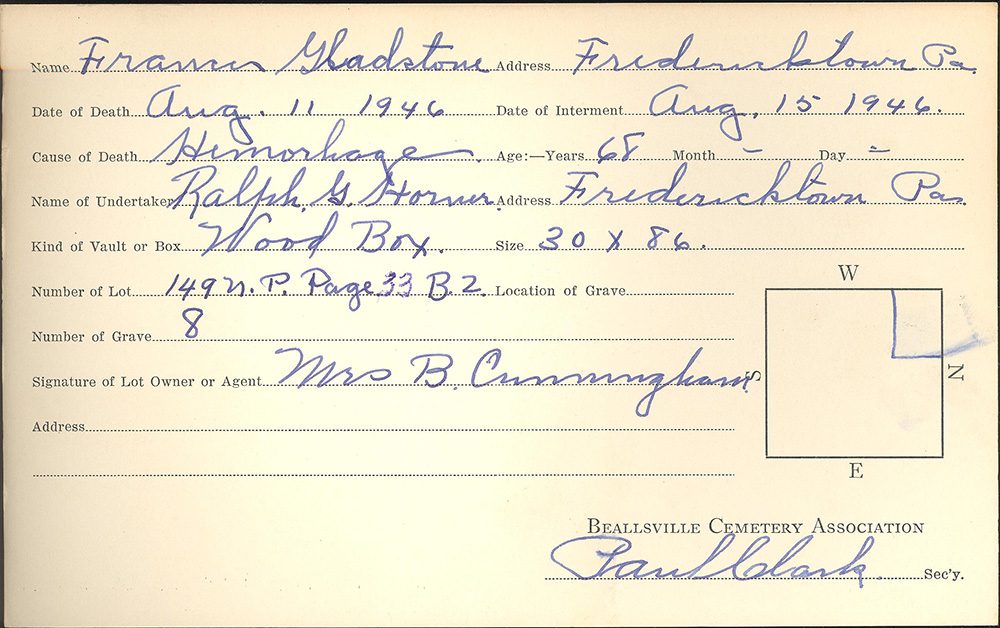 Name Francis Gladstone Address Fredericktown Pa.
Date of Death Aug. 11 1946 Date of Interment Aug. 15 1946.
Cause of Death Hemorhage. Age:—Years 68 Month – Day =
Name of Undertaker Ralph. G. Horner. Address Fredericktown Pa.
Kind of Vault or Box Wood Box. Size 30 X 86.
Number of Lot 149 N. P. Page 33 B. 2. Location of Grave
W
Number of Grave 8
Signature of Lot Owner or Agent Mrs B. Cunningham
S N
Address
E
BEALLSVILLE CEMETERY ASSOCIATION
Paul Clark Sec'y.